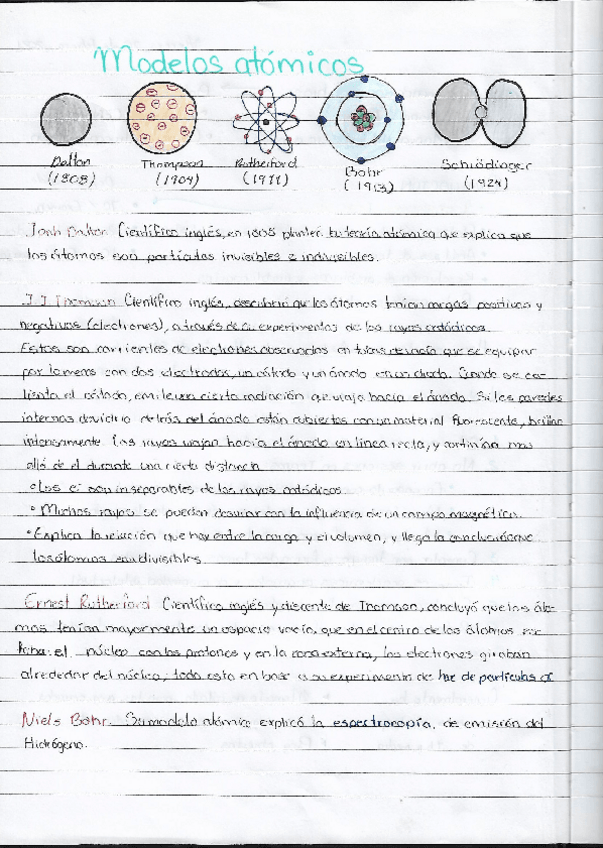 Modelos atómicos
Dalton Thompson Rutherford Bohr Schrödinger
(1808) (1904) (1911) (1913) (1924)
Jonh Dalton. Científico inglés, en 1808 planteo tu teoría atómica que explica que
los átomos son partículas invisibles e indivisibles.
J.J Thomson Científico inglés, descubrió que los átomos tenían cargas positivas y
negativas (electrones), a través de su experimentos de los rayos catódicos.
Estos son corrientes de electrones observados en tubos de vacío que se equipan
por lo menos con dos electrodos, un cátodo y un ánodo en un diodo. Cuando se ca-
lienta el cátodo, emite una cierta radiación que viaja hacia el ánodo. Si las paredes
internas de vidrio detrás del ánodo están cubiertas con un material fluorescente, brillan
intensamente. Los rayos viajan hacia el ánodo en línea recta, y continúan más
allá de el durante una cierta distancia
• Los e- son inseparables de los rayos catódicos
• Muchos rayos se pueden desviar con la influencia de un campo magnético.
• Explica la relación que hay entre la carga y el volumen, y llega la conclusión que
los átomos son divisibles.
Ernest Rutherford Científico inglés y discente de Thomson, concluyó que los áto-
mos tenían mayormente un espacio vacío, que en el centro de los átomos
el núcleo con los protones y en la zona externa, los electrones giraban
alrededor del núcleo, todo esto en base a su experimento de haz de partículas α
Niels Bohr. Su modelo atómico explicó la espectrocopía, de emisión del
Hidrógeno.